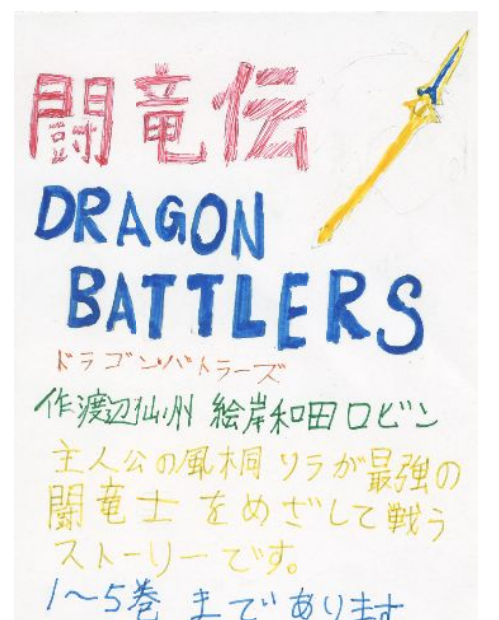 闘竜伝
DRAGON
BATTLERS
ドラゴンバトラーズ
作渡辺仙州 絵岸和田ロビン
主人公の風桐リラが最強の
闘竜士をめざして戦う
ストーリーです。
1〜5巻まであります